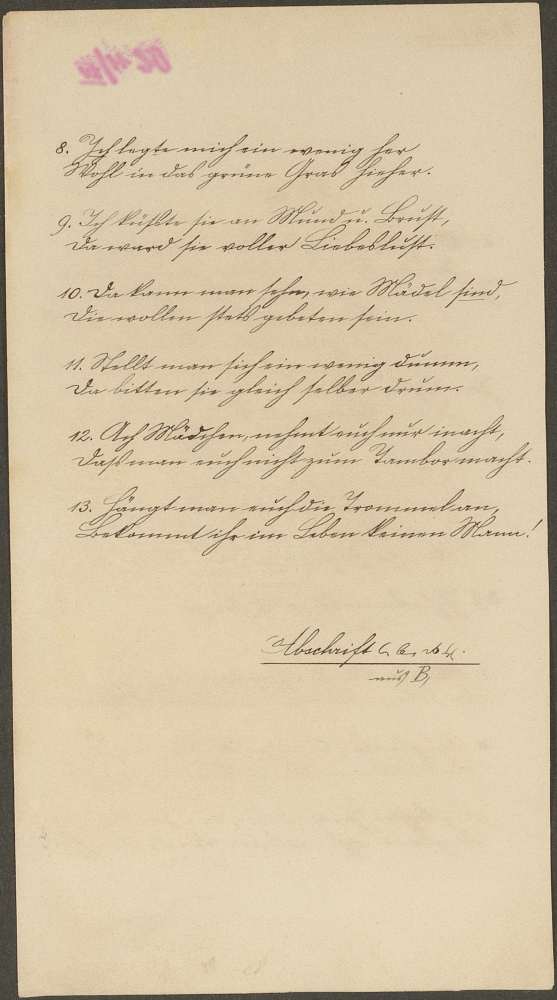 8. Ich legte mich ein wenig her
Wohl in das grüne Gras hieher.
9. Ich küßte sie an Mund u. Brust,
Da ward sie voller Liebeslust.
10. Da kann man sehn, wie Mädel sind,
Die wollen stets gebeten sein.
11. Stellt man sich ein wenig dumm,
Da bitten sie gleich selber drum.
12. Ach Mädchen, nehmt euch nur inacht,
Daß man euch nicht zum Tambor macht.
13. Hängt man euch die Trommel an,
Bekommt ihr im Leben keinen Mann!
Abschrift
aus B,